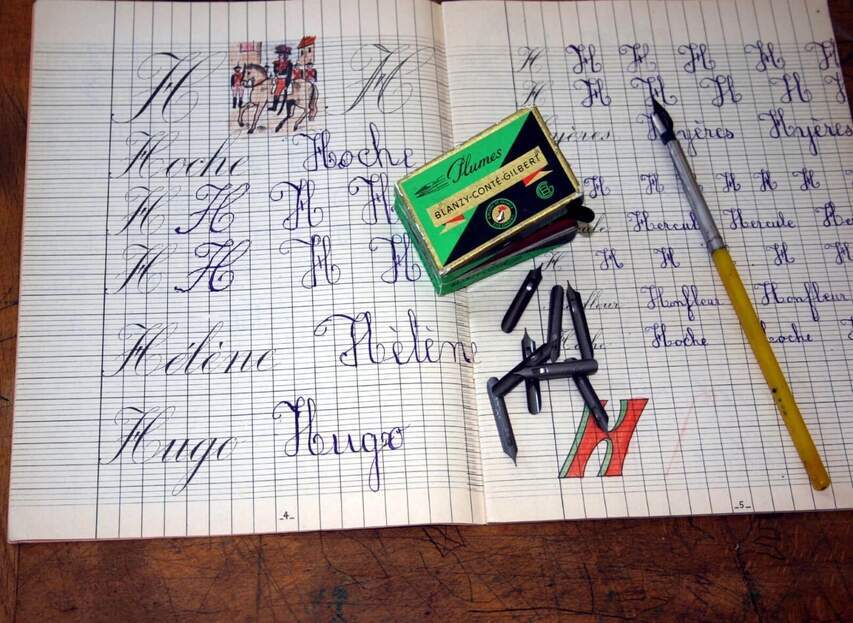 H H
Hoche Hoche
H H H H
H H H H
Hélène Hélène
Hugo Hugo
_4_
Plumes
BLANZY-CONTÉ-GILBERT
H H H H H H
H H H H H H
Hyères Hyères Hyères
H H H H H
Hercule Hercule
H H H H H
Honfleur Honfleur
Hoche Hoche
H
_5_